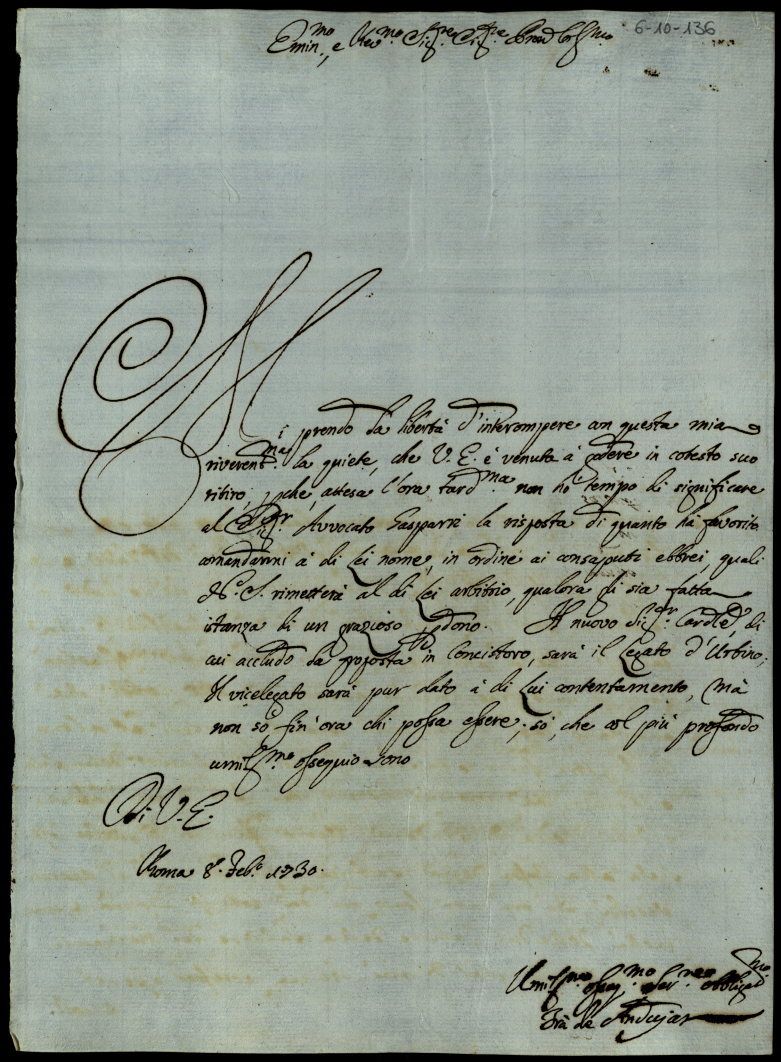 6-10-136
Emin.mo, e Rev.mo Sig.re Sig.re Pron Col.mo
Mi prendo la libertà d'interompere con questa mia
riverent.ma la quiete, che V. E. è venuta à godere in cotesto suo
ritiro, pche, attesa l'ora tard.ma non hò tempo di significare
al Sig.r Avvocato Gasparri la risposta di quanto hà favorito
comandarmi à di Lei nome, in ordine ai consaputi ebbrei, quali
N. S. rimetterà al di Lei arbitrio, qualora gli sia fatta
istanza di un grazioso pdono. Il nuovo Sig.r Cardle, di
cui accludo la proposta in Concistoro, sarà il Legato d'Urbino;
Il vicelegato sarà pur dato à di Lui contentamento, mà
non sò fin'ora chi possa essere; sò, che col più profondo
umil.mo ossequio sono
Di V. E.
Roma 8. Feb.o 1730.
Umil.mo osseq.mo ser.re obbligat.mo
Frà de Andujar